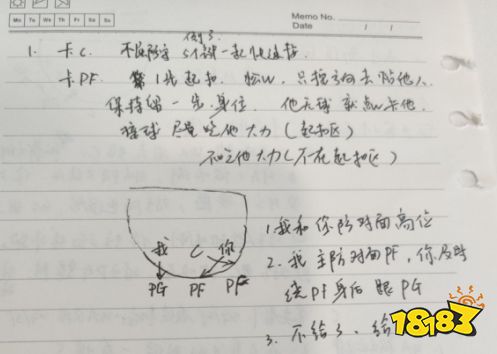 Memo No.
Mo Tu We Th Fr Sa Su
Date / /
1. 卡C. 不 5个键一起
卡PF. 第1 起扣. 松W. 只按方向去贴他人.
保持留一步身位. 他无球 就点W卡他.
接球 尽量吃他大力(起扣区)
不吃他大力(不在起扣区)
我 C 你
PG PF PF
1.我和你防对面高位
2.我主防对面PF,你及时
绕PF身后 跟PG
3.不给3.给
18183